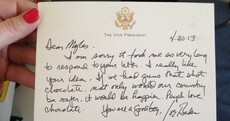 THE VICE PRESIDENT
4/30/13
Dear Myles,
I am sorry it took me so very long
to respond to your letter. I really like
your idea. If we had guns that shot
chocolate, not only would our country
be safer, it would be happier. People love
chocolate.
You are a Good boy,
Joe Biden